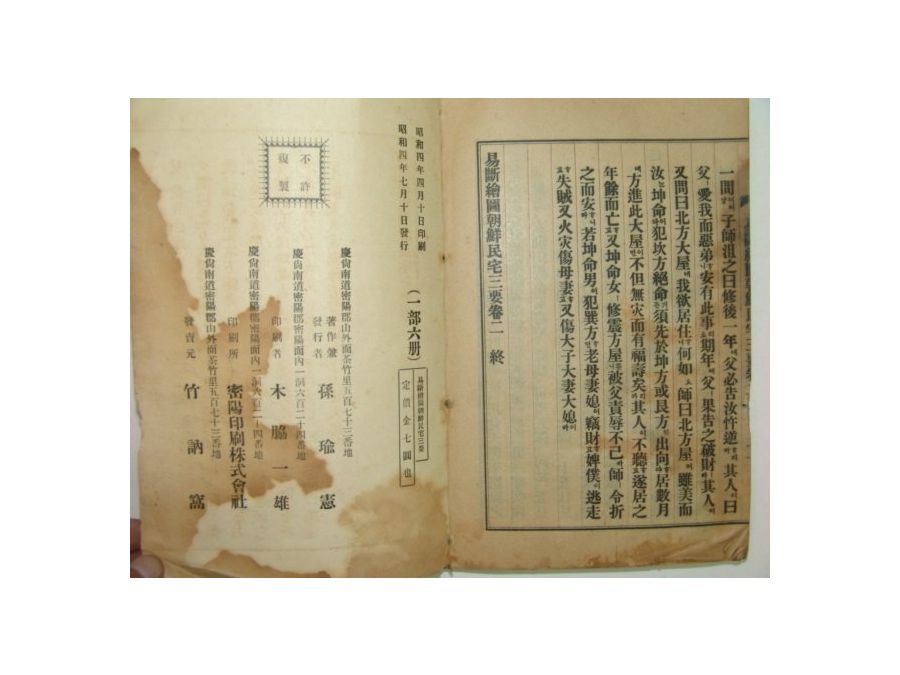 一問 子師沮之曰修後一年 父必告汝忤逆 其人曰
父 愛我而惡弟 安有此事 期年 父 果告之破財 其人
又問曰北方大屋 我欲居住 何如 師曰北方屋 雖美而
汝 坤命 犯坎方絶命 須先於坤方或艮方 出向 居數月
方進此大屋 不但無灾而有福壽矣 其人 不聽 遂居之
年餘而亡 又坤命女 修震方屋 被父責辱不已 師 令折
之而安 若坤命男 犯巽方 老母妻媳 竊財 婢僕 逃走
失賊 又火灾傷母妻 又傷大子大妻大媳
易斷繪圖朝鮮民宅三要卷二 終
昭和四年四月十日印刷
昭和四年七月十日發行
不許
複製
(一部六册)
易斷繪圖朝鮮民宅三要
定價金七圓也
慶尙南道密陽郡山外面茶竹里五百七十三番地
著作兼
發行者 孫瑜憲
慶尙南道密陽郡密陽面內一洞六百二十四番地
印刷者 木脇一雄
慶尙南道密陽郡密陽面內一洞六百二十四番地
印刷所 密陽印刷株式會社
慶尙南道密陽郡山外面茶竹里五百七十三番地
發賣元 竹訥窩